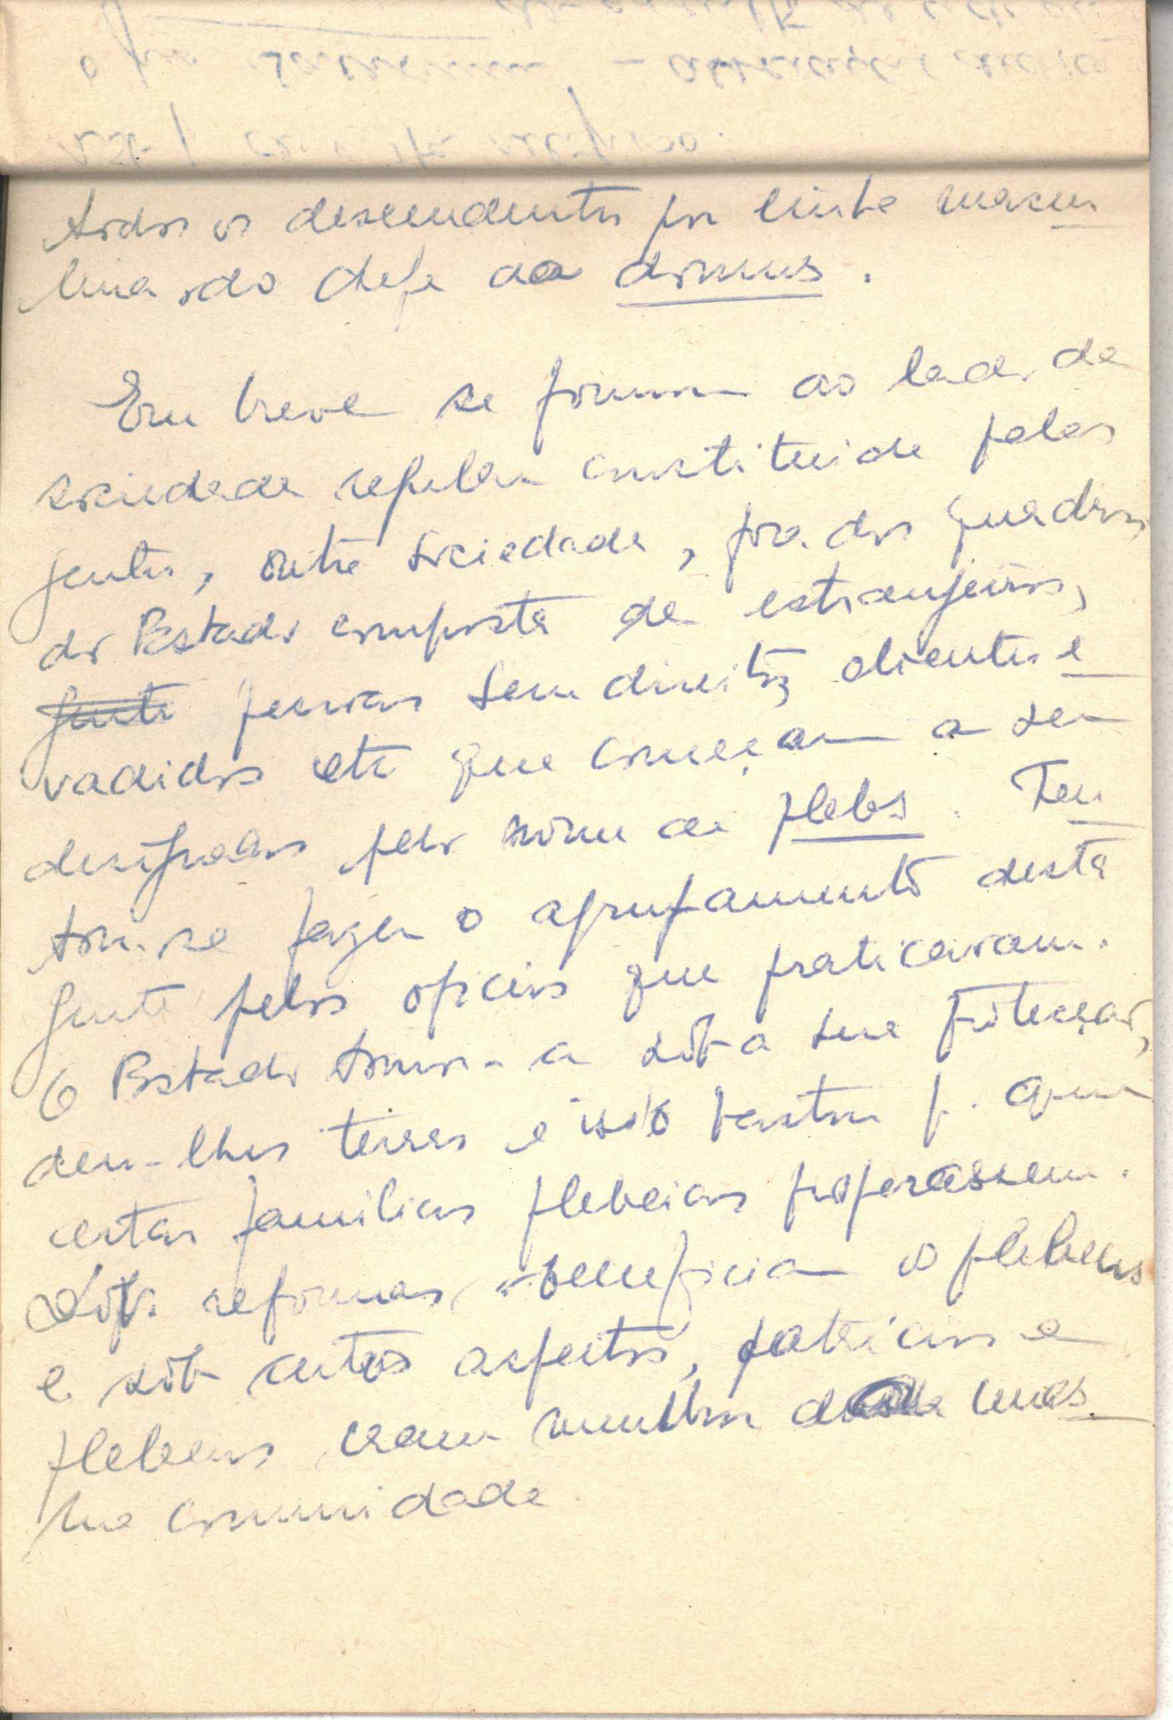 todos os descendentes por linha mascu
lina do chefe da domus.
Em breve se forma ao lado da
sociedade regular constituida pelas
gentes, outra sociedade, fora dos quadros
do Estado composta de estrangeiros,
gente pessoas sem direitos, clientes e
vadidos etc que começam a ser
designados pelo nome de plebs. Ten
tou-se fazer o agrupamento desta
gente pelos oficios que praticavam.
O Estado tomou-a sob a sua protecção,
deu-lhes terras e isso bastou p. que
certas familias plebeias prosperassem.
reformas beneficiam os plebeus
e sob certos aspectos, patricios e
plebeus eram membros da mes
ma comunidade